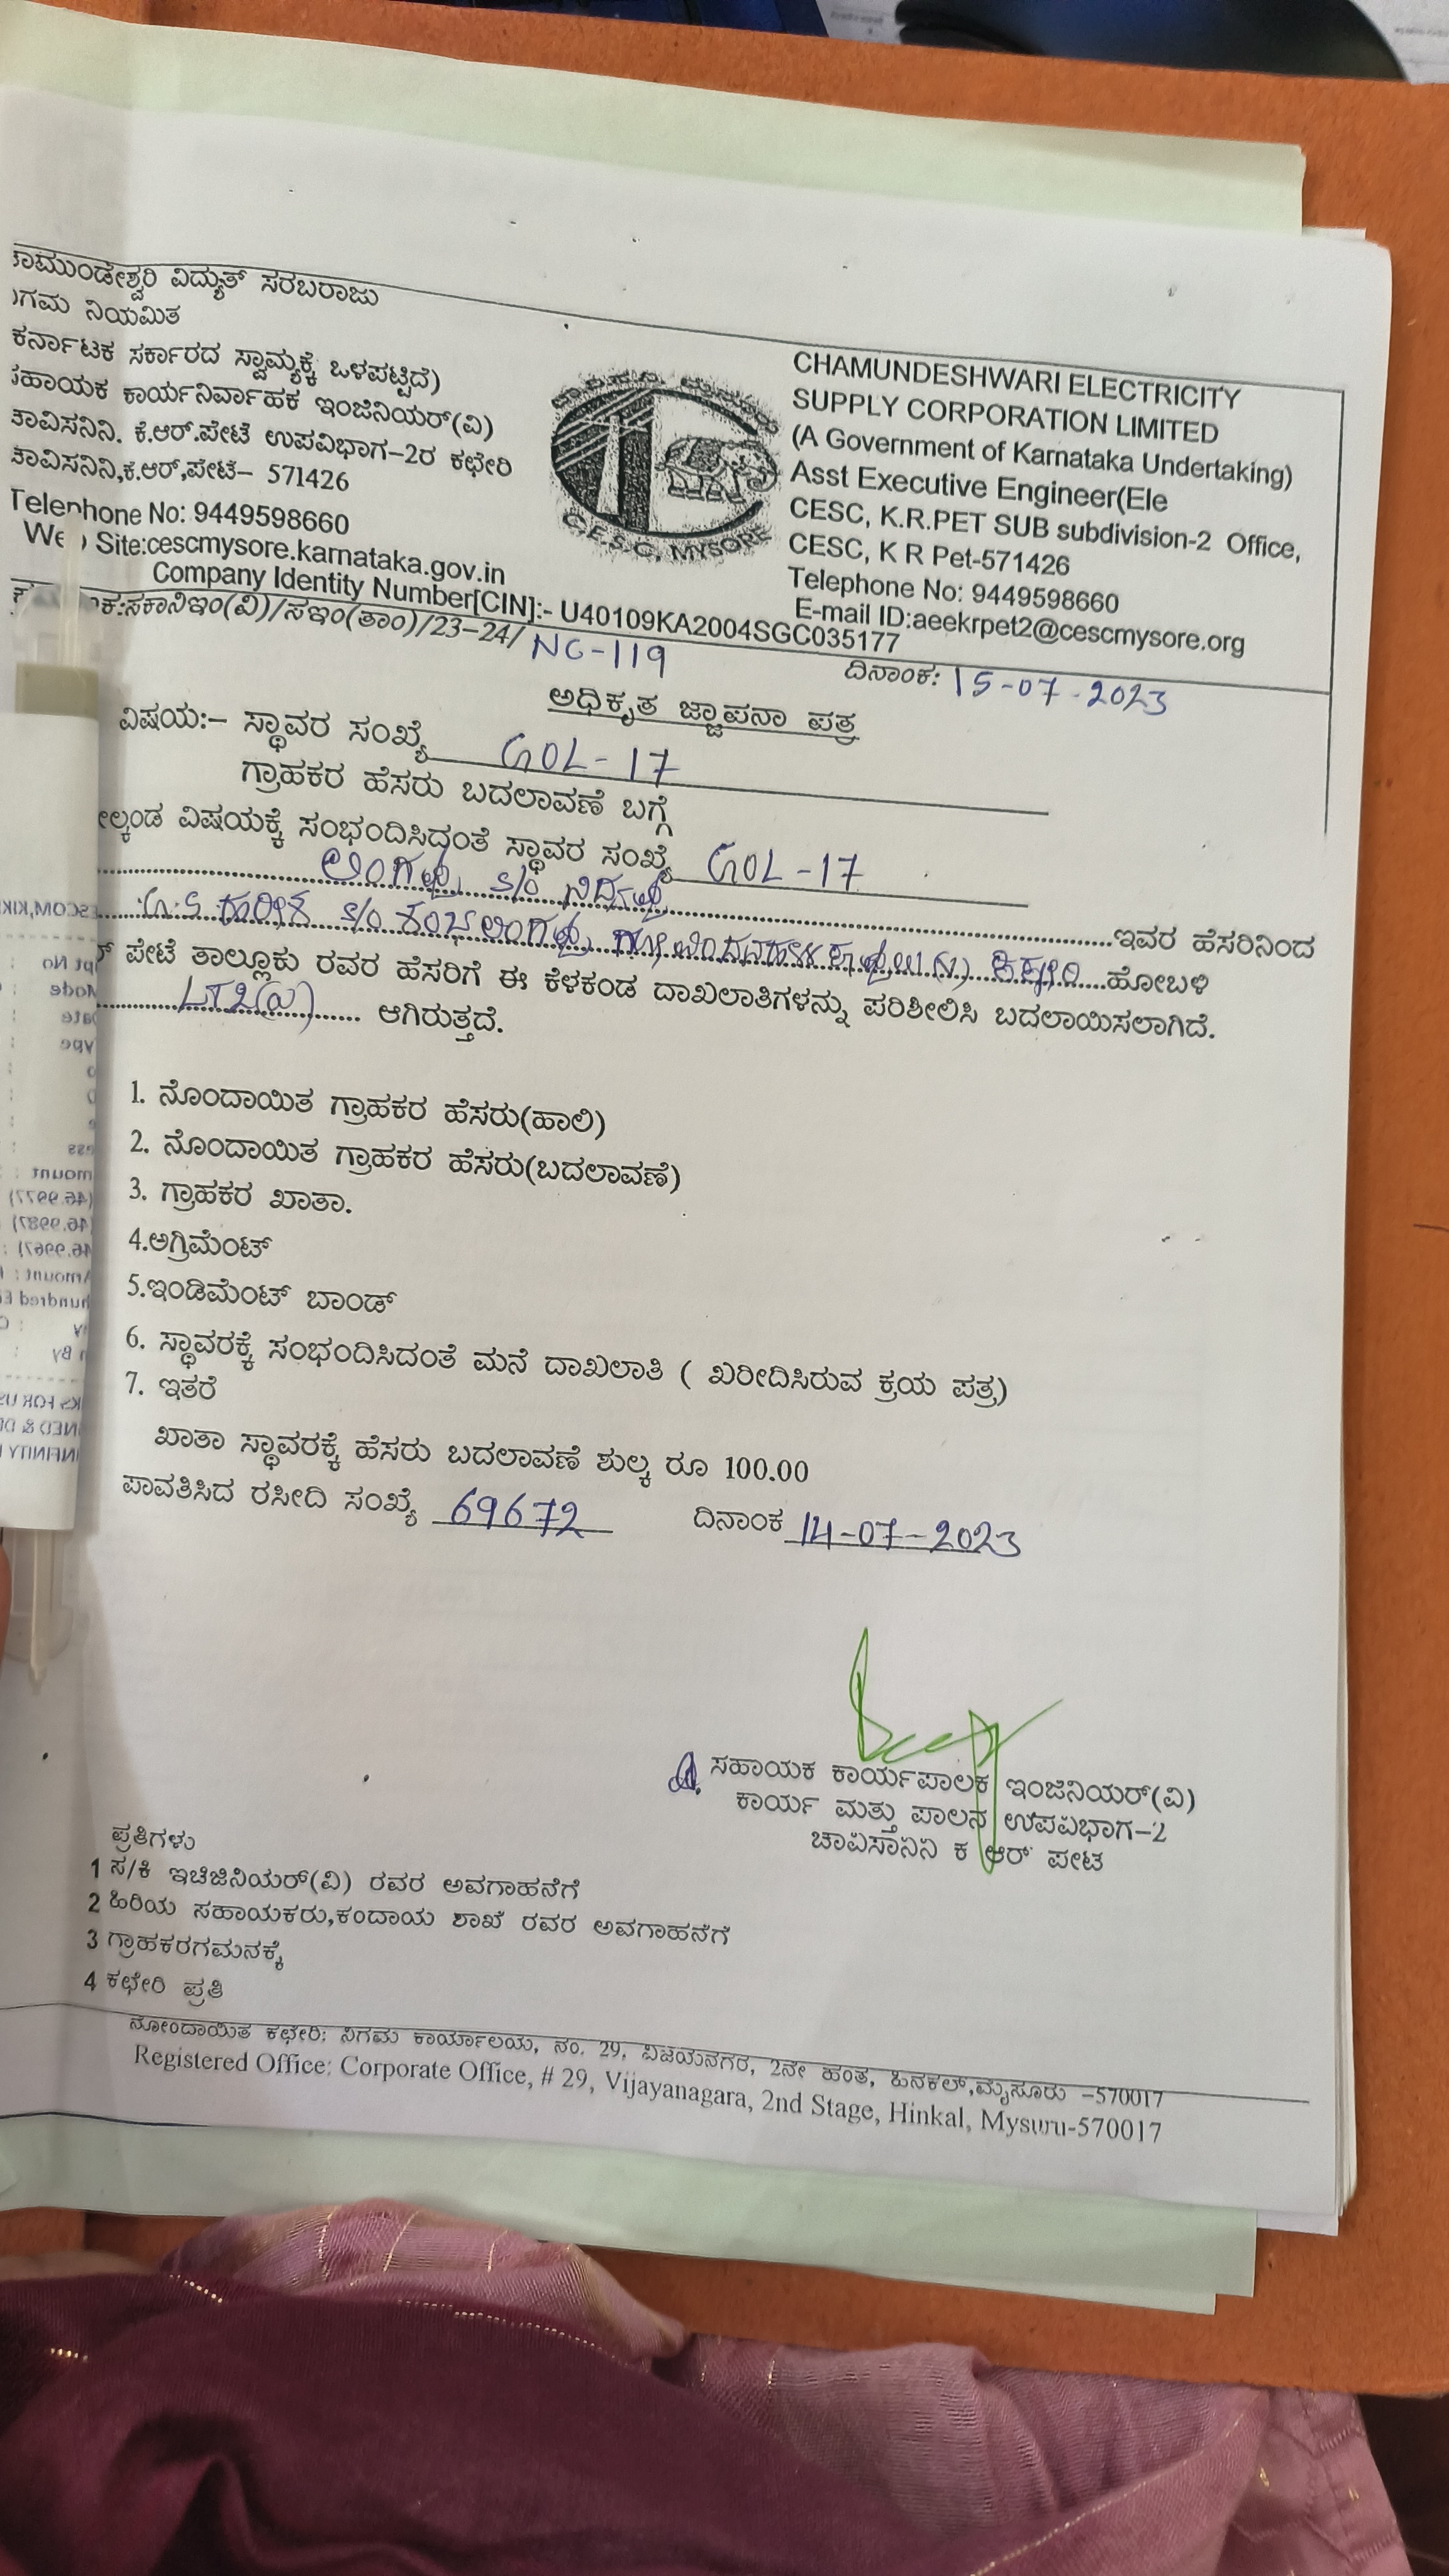 ಾಮುಂಡೇಶ್ವರಿ ವಿದ್ಯುತ್ ಸರಬರಾಜು
ಗಮ ನಿಯಮಿತ
ಕರ್ನಾಟಕ ಸರ್ಕಾರದ ಸ್ವಾಮ್ಯಕ್ಕೆ ಒಳಪಟ್ಟಿದೆ)
ಸಹಾಯಕ ಕಾರ್ಯನಿರ್ವಾಹಕ ಇಂಜಿನಿಯರ್(ವಿ)
ಾವಿಸನಿನಿ. ಕೆ.ಆರ್.ಪೇಟೆ ಉಪವಿಭಾಗ-2ರ ಕಛೇರಿ
ಾವಿಸನಿನಿ,ಕೆ.ಆರ್,ಪೇಟೆ- 571426
Telephone No: 9449598660
Web Site:cescmysore.karnataka.gov.in
C.E.S.C, MYSORE
CHAMUNDESHWARI ELECTRICITY
SUPPLY CORPORATION LIMITED
(A Government of Karnataka Undertaking)
Asst Executive Engineer(Ele
CESC, K.R.PET SUB subdivision-2 Office,
CESC, K R Pet-571426
Telephone No: 9449598660
E-mail ID:aeekrpet2@cescmysore.org
Company Identity Number[CIN]:- U40109KA2004SGC035177
ಕ:ಸಕಾನಿಇಂ(ವಿ)/ಸಇಂ(ತಾಂ)/23-24/ NC-119
ದಿನಾಂಕ: 15-07-2023
ಅಧಿಕೃತ ಜ್ಞಾಪನಾ ಪತ್ರ
ವಿಷಯ:- ಸ್ಥಾವರ ಸಂಖ್ಯೆ GOL-17
ಗ್ರಾಹಕರ ಹೆಸರು ಬದಲಾವಣೆ ಬಗ್ಗೆ
ೇಲ್ಕಂಡ ವಿಷಯಕ್ಕೆ ಸಂಭಂದಿಸಿದಂತೆ ಸ್ಥಾವರ ಸಂಖ್ಯೆ GOL-17
S/o ಇವರ ಹೆಸರಿನಿಂದ
G.S ಹರೀಶ S/o ಹೋಬಳಿ
ಪೇಟೆ ತಾಲ್ಲೂಕು ರವರ ಹೆಸರಿಗೆ ಈ ಕೆಳಕಂಡ ದಾಖಲಾತಿಗಳನ್ನು ಪರಿಶೀಲಿಸಿ ಬದಲಾಯಿಸಲಾಗಿದೆ.
LT2(a) ಆಗಿರುತ್ತದೆ.
1. ನೊಂದಾಯಿತ ಗ್ರಾಹಕರ ಹೆಸರು(ಹಾಲಿ)
2. ನೊಂದಾಯಿತ ಗ್ರಾಹಕರ ಹೆಸರು(ಬದಲಾವಣೆ)
3. ಗ್ರಾಹಕರ ಖಾತಾ.
4.ಅಗ್ರಿಮೆಂಟ್
5.ಇಂಡಿಮೆಂಟ್ ಬಾಂಡ್
6. ಸ್ಥಾವರಕ್ಕೆ ಸಂಭಂದಿಸಿದಂತೆ ಮನೆ ದಾಖಲಾತಿ ( ಖರೀದಿಸಿರುವ ಕ್ರಯ ಪತ್ರ)
7. ಇತರೆ
ಖಾತಾ ಸ್ಥಾವರಕ್ಕೆ ಹೆಸರು ಬದಲಾವಣೆ ಶುಲ್ಕ ರೂ 100.00
ಪಾವತಿಸಿದ ರಸೀದಿ ಸಂಖ್ಯೆ 69672 ದಿನಾಂಕ 14-07-2023
ಸಹಾಯಕ ಕಾರ್ಯಪಾಲಕ ಇಂಜಿನಿಯರ್(ವಿ)
ಕಾರ್ಯ ಮತ್ತು ಪಾಲನ ಉಪವಿಭಾಗ-2
ಚಾವಿಸಾನಿನಿ ಕೆ ಆರ್ ಪೇಟೆ
ಪ್ರತಿಗಳು
1 ಸ/ಕಿ ಇಚಿಜಿನಿಯರ್(ವಿ) ರವರ ಅವಗಾಹನೆಗೆ
2 ಹಿರಿಯ ಸಹಾಯಕರು,ಕಂದಾಯ ಶಾಖೆ ರವರ ಅವಗಾಹನೆಗೆ
3 ಗ್ರಾಹಕರಗಮನಕ್ಕೆ
4 ಕಛೇರಿ ಪ್ರತಿ
ನೋಂದಾಯಿತ ಕಛೇರಿ: ನಿಗಮ ಕಾರ್ಯಾಲಯ, ನಂ. 29, ವಿಜಯನಗರ, 2ನೇ ಹಂತ, ಹಿನಕಲ್,ಮೈಸೂರು -570017
Registered Office: Corporate Office, # 29, Vijayanagara, 2nd Stage, Hinkal, Mysuru-570017